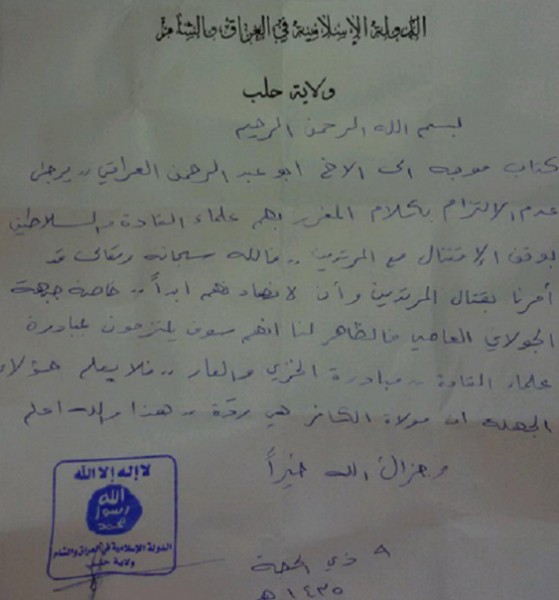 الدولة الإسلامية في العراق والشام
ولاية حلب
بسم الله الرحمن الرحيم
كتاب موجه الى الاخ ابو عبد الرحمن العراقي .. يرجى
عدم الالتزام بكلام المغرر بهم علماء القادة والسلاطين
بوقف الإقتتال مع المرتدين .. فالله سبحانه وتعالى قد
أمرنا بقتال المرتدين وأن لا نهادنهم ابداً .. خاصة جبهة
الجولاني العاصي فالظاهر لنا انهم سوف يلتزمون بمبادرة
علماء القادة .. مبادرة الخزي والعار .. فلا يعلم هؤلاء
الجهلة ان موالاة الكافر هي ردّة .. هذا والله اعلم
وجزاك الله خيراً
لا إله إلا الله
الله
رسول
محمد
الدولة الإسلامية في العراق والشام
ولاية حلب
٩ ذي الحجة
١٤٣٥ هـ